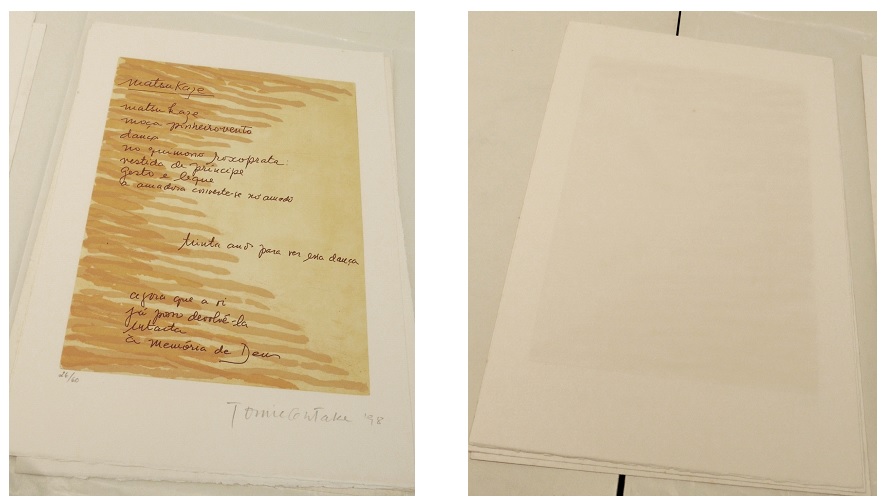 matsukaze
matsukaze
moça pinheirovento
dança
no quimono roxoprata:
vestida de príncipe
gesto e leque
a amadora converte-se no amado
trinta anos para ver essa dança
agora que a vi
já posso devolvê-la
intacta
à memória de Deus
26/60
Tomie Ohtake '98